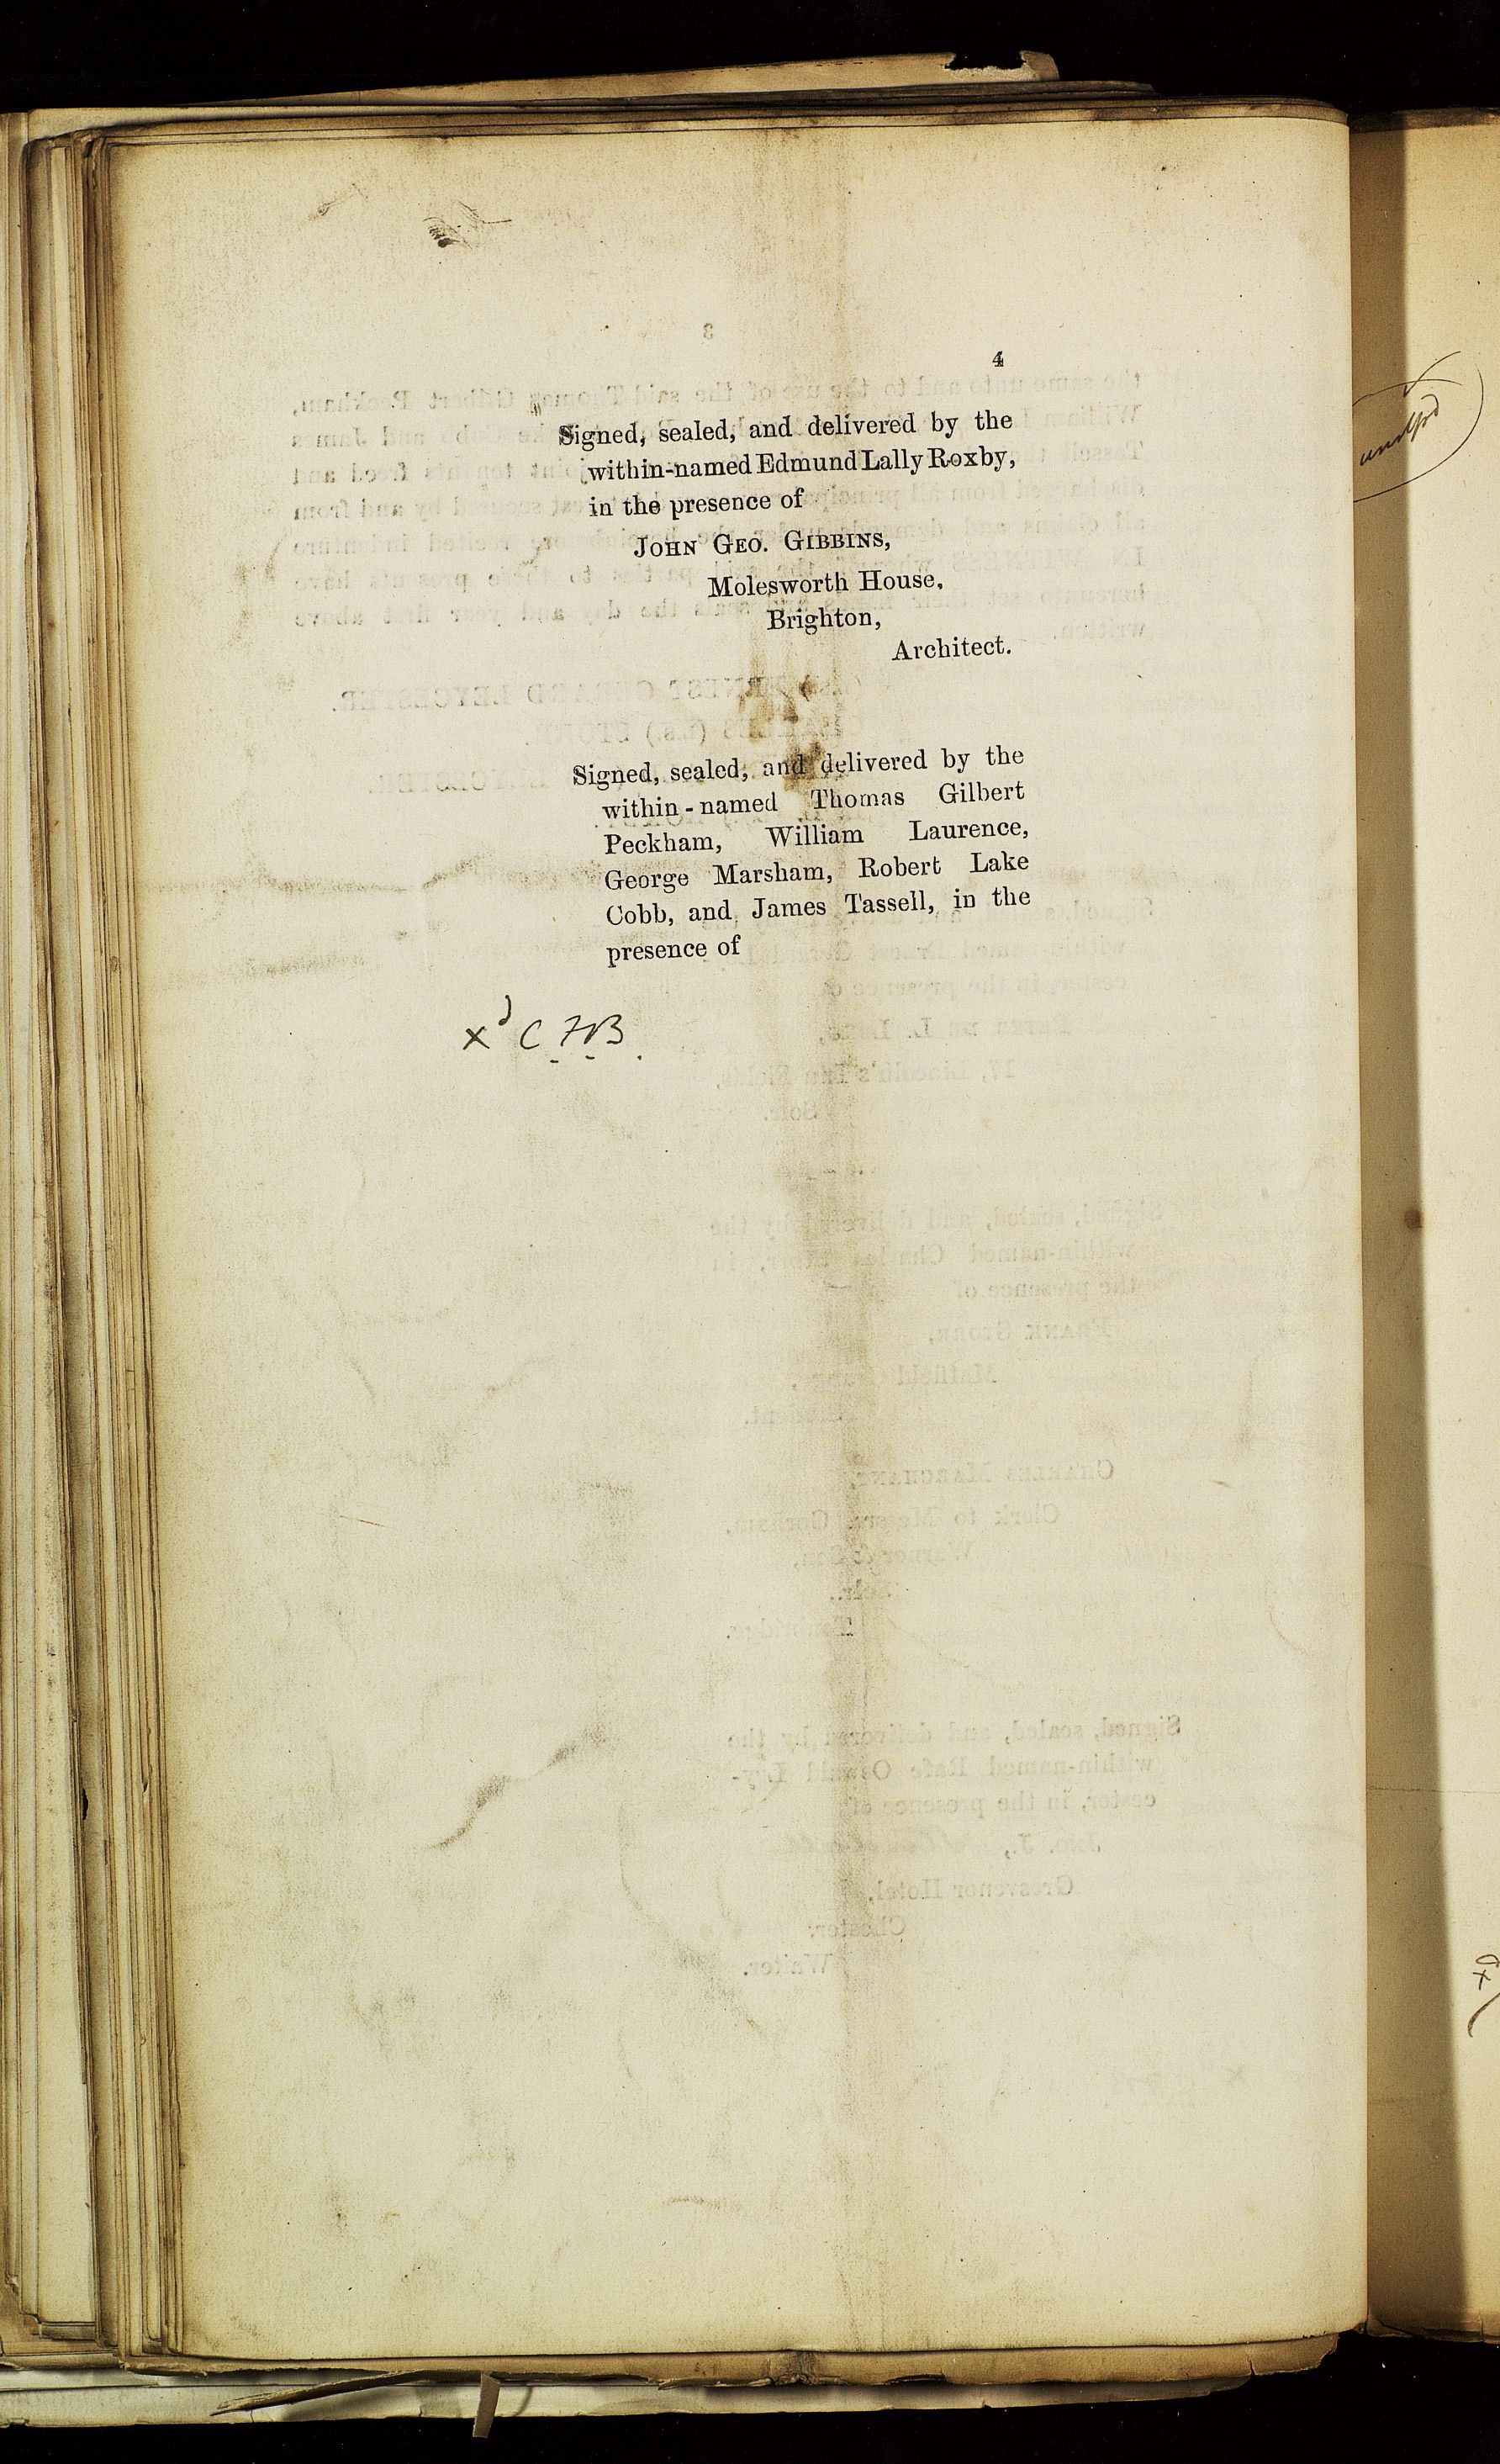 4
Signed, sealed, and delivered by the
within-named Edmund Lally Roxby,
in the presence of
JOHN GEO. GIBBINS,
Molesworth House,
Brighton,
Architect.
Signed, sealed, and delivered by the
within-named Thomas Gilbert
Peckham, William Laurence,
George Marsham, Robert Lake
Cobb, and James Tassell, in the
presence of
xd C F B.